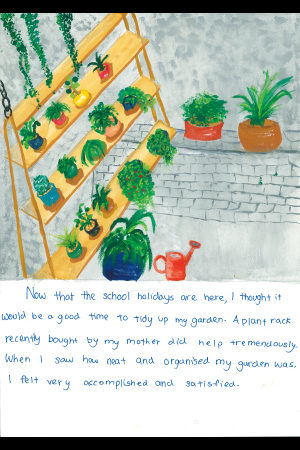 Now that the school holidays are here, I thought it
would be a good time to tidy up my garden. A plant rack
recently bought by my mother did help tremendously.
When I saw how neat and organised my garden was,
I felt very accomplished and satisfied.